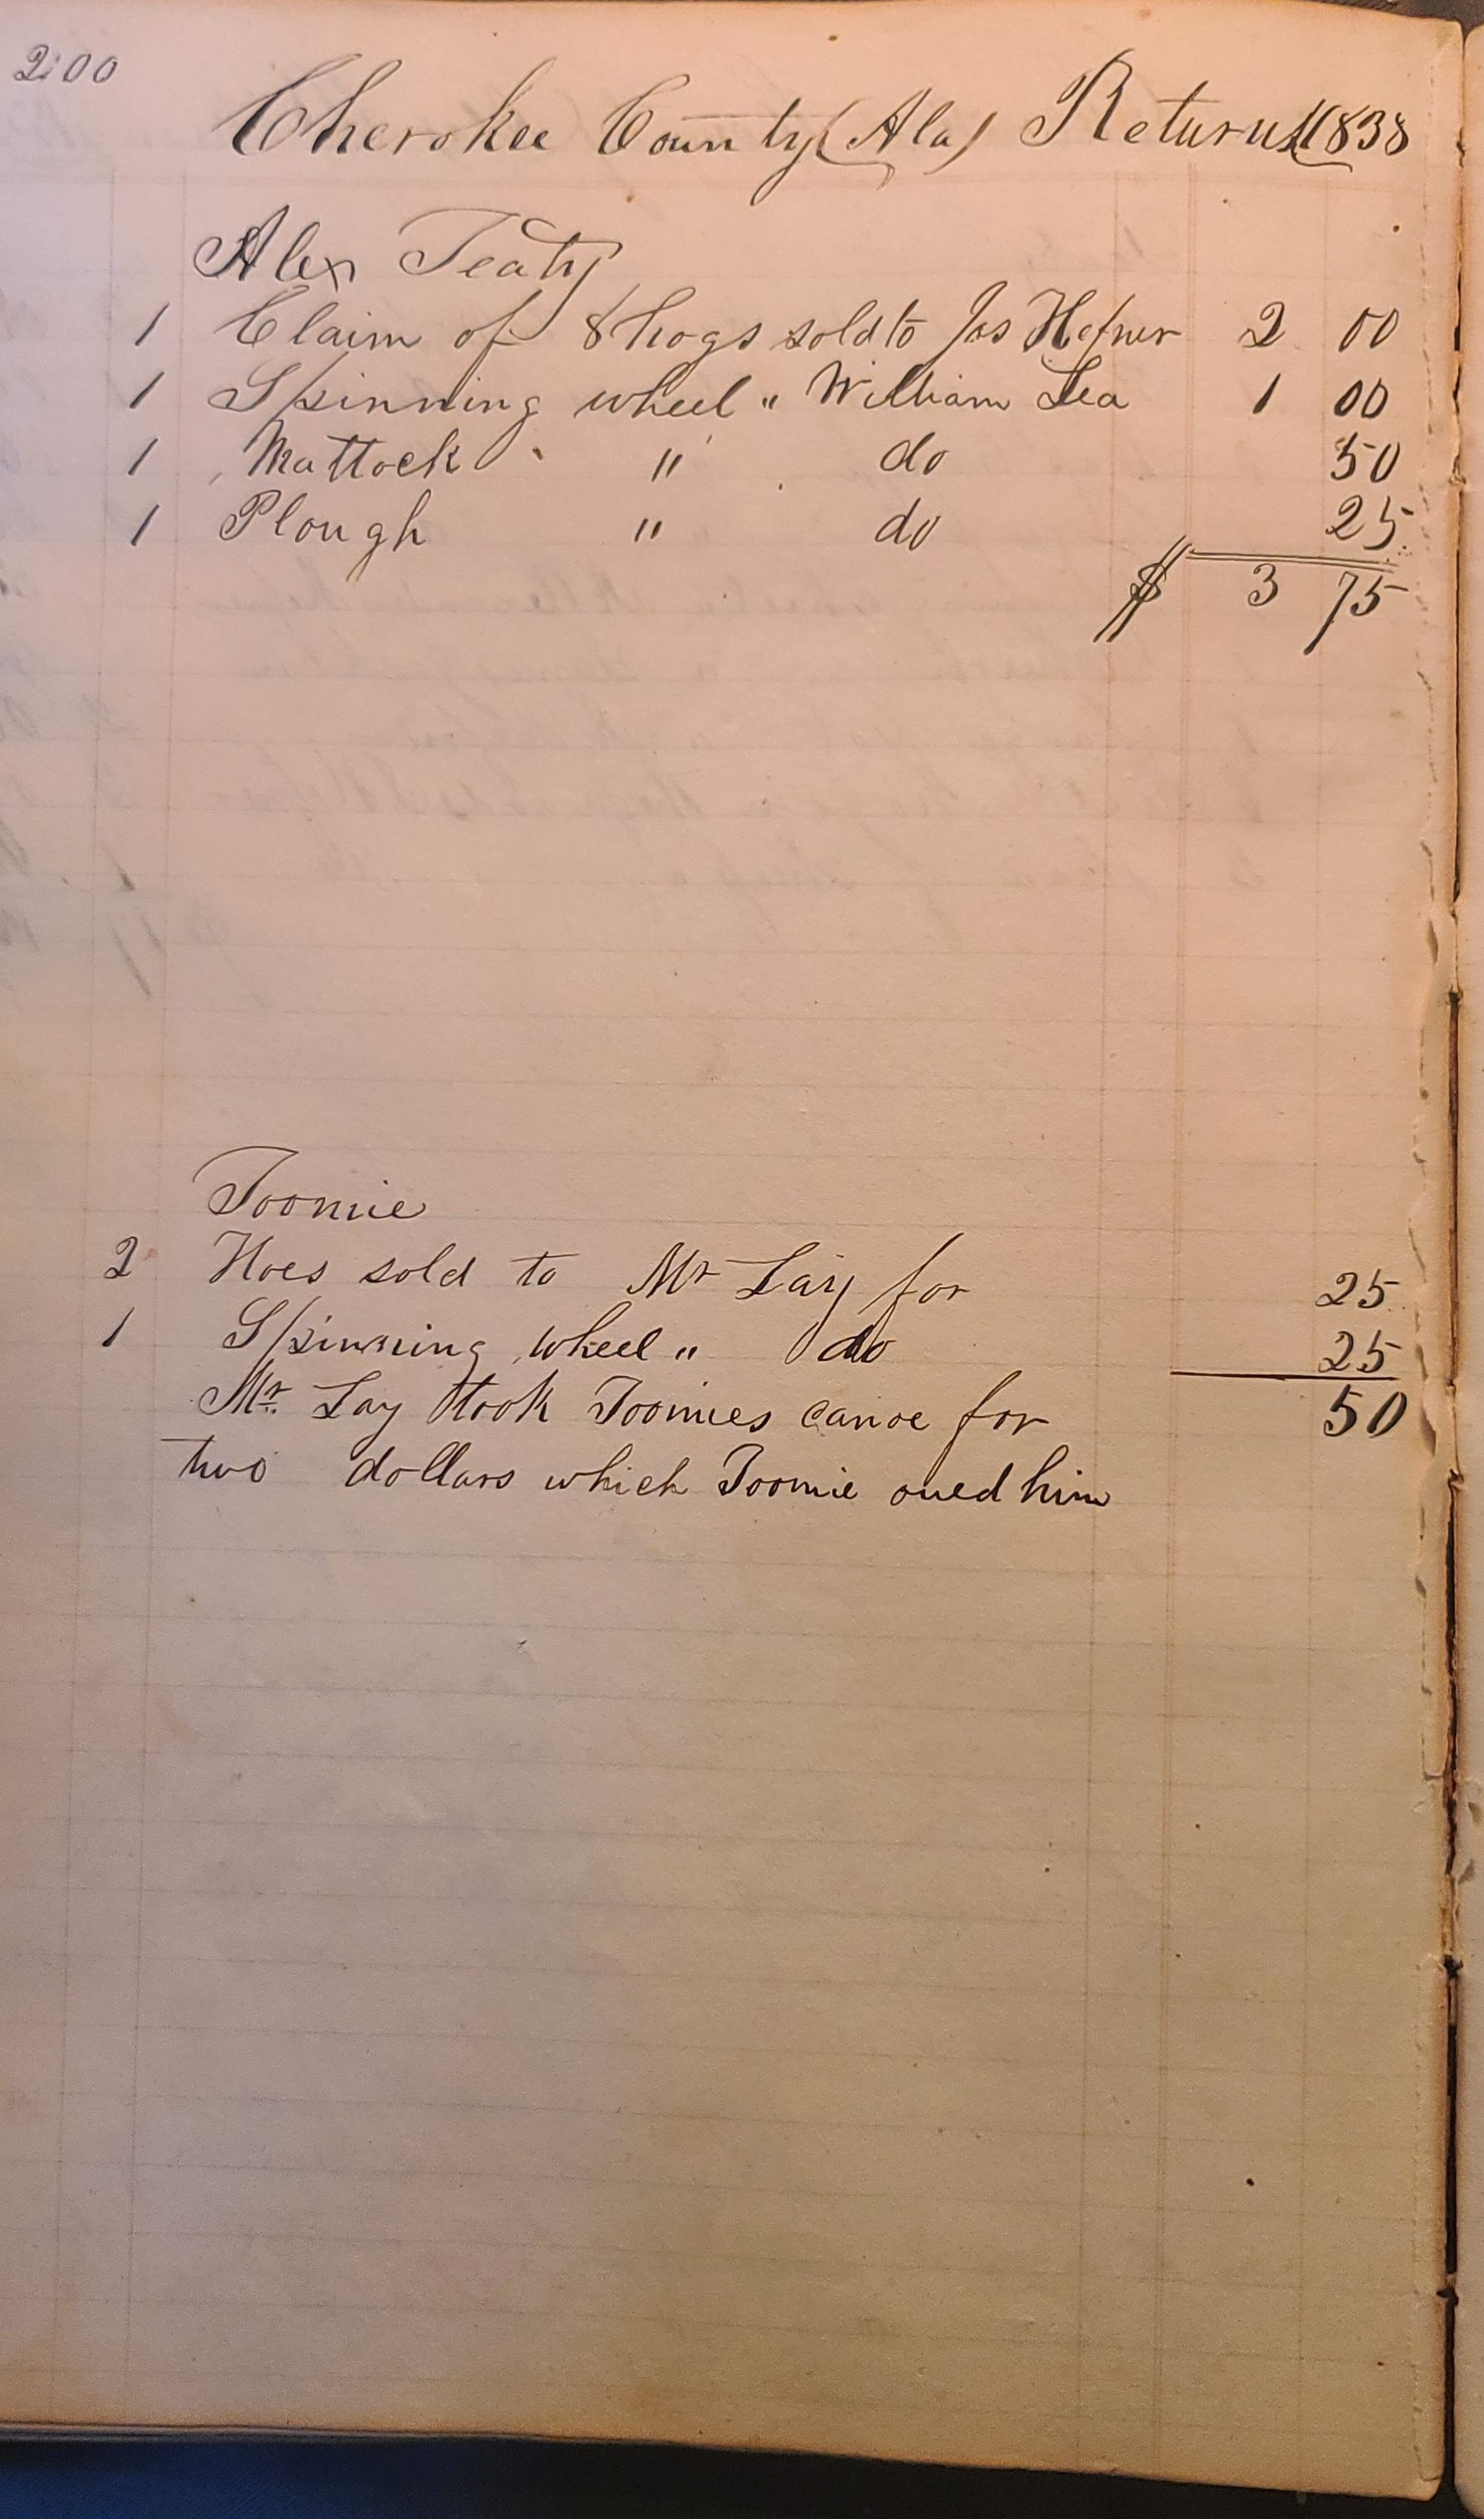 200
Cherokee County (Ala) Returns 1838
Alex Teaty
1 Claim of 8 hogs sold to Jas Hefner 2 00
1 Spinning wheel " William Lea 1 00
1 Mattock " do 50
1 Plough " do 25
$ 3 75
Toomie
2 Hoes sold to Mr Lay for 25
1 Spinning wheel " do 25
Mr. Lay took Toomies canoe for 50
two dollars which Toomie oued him